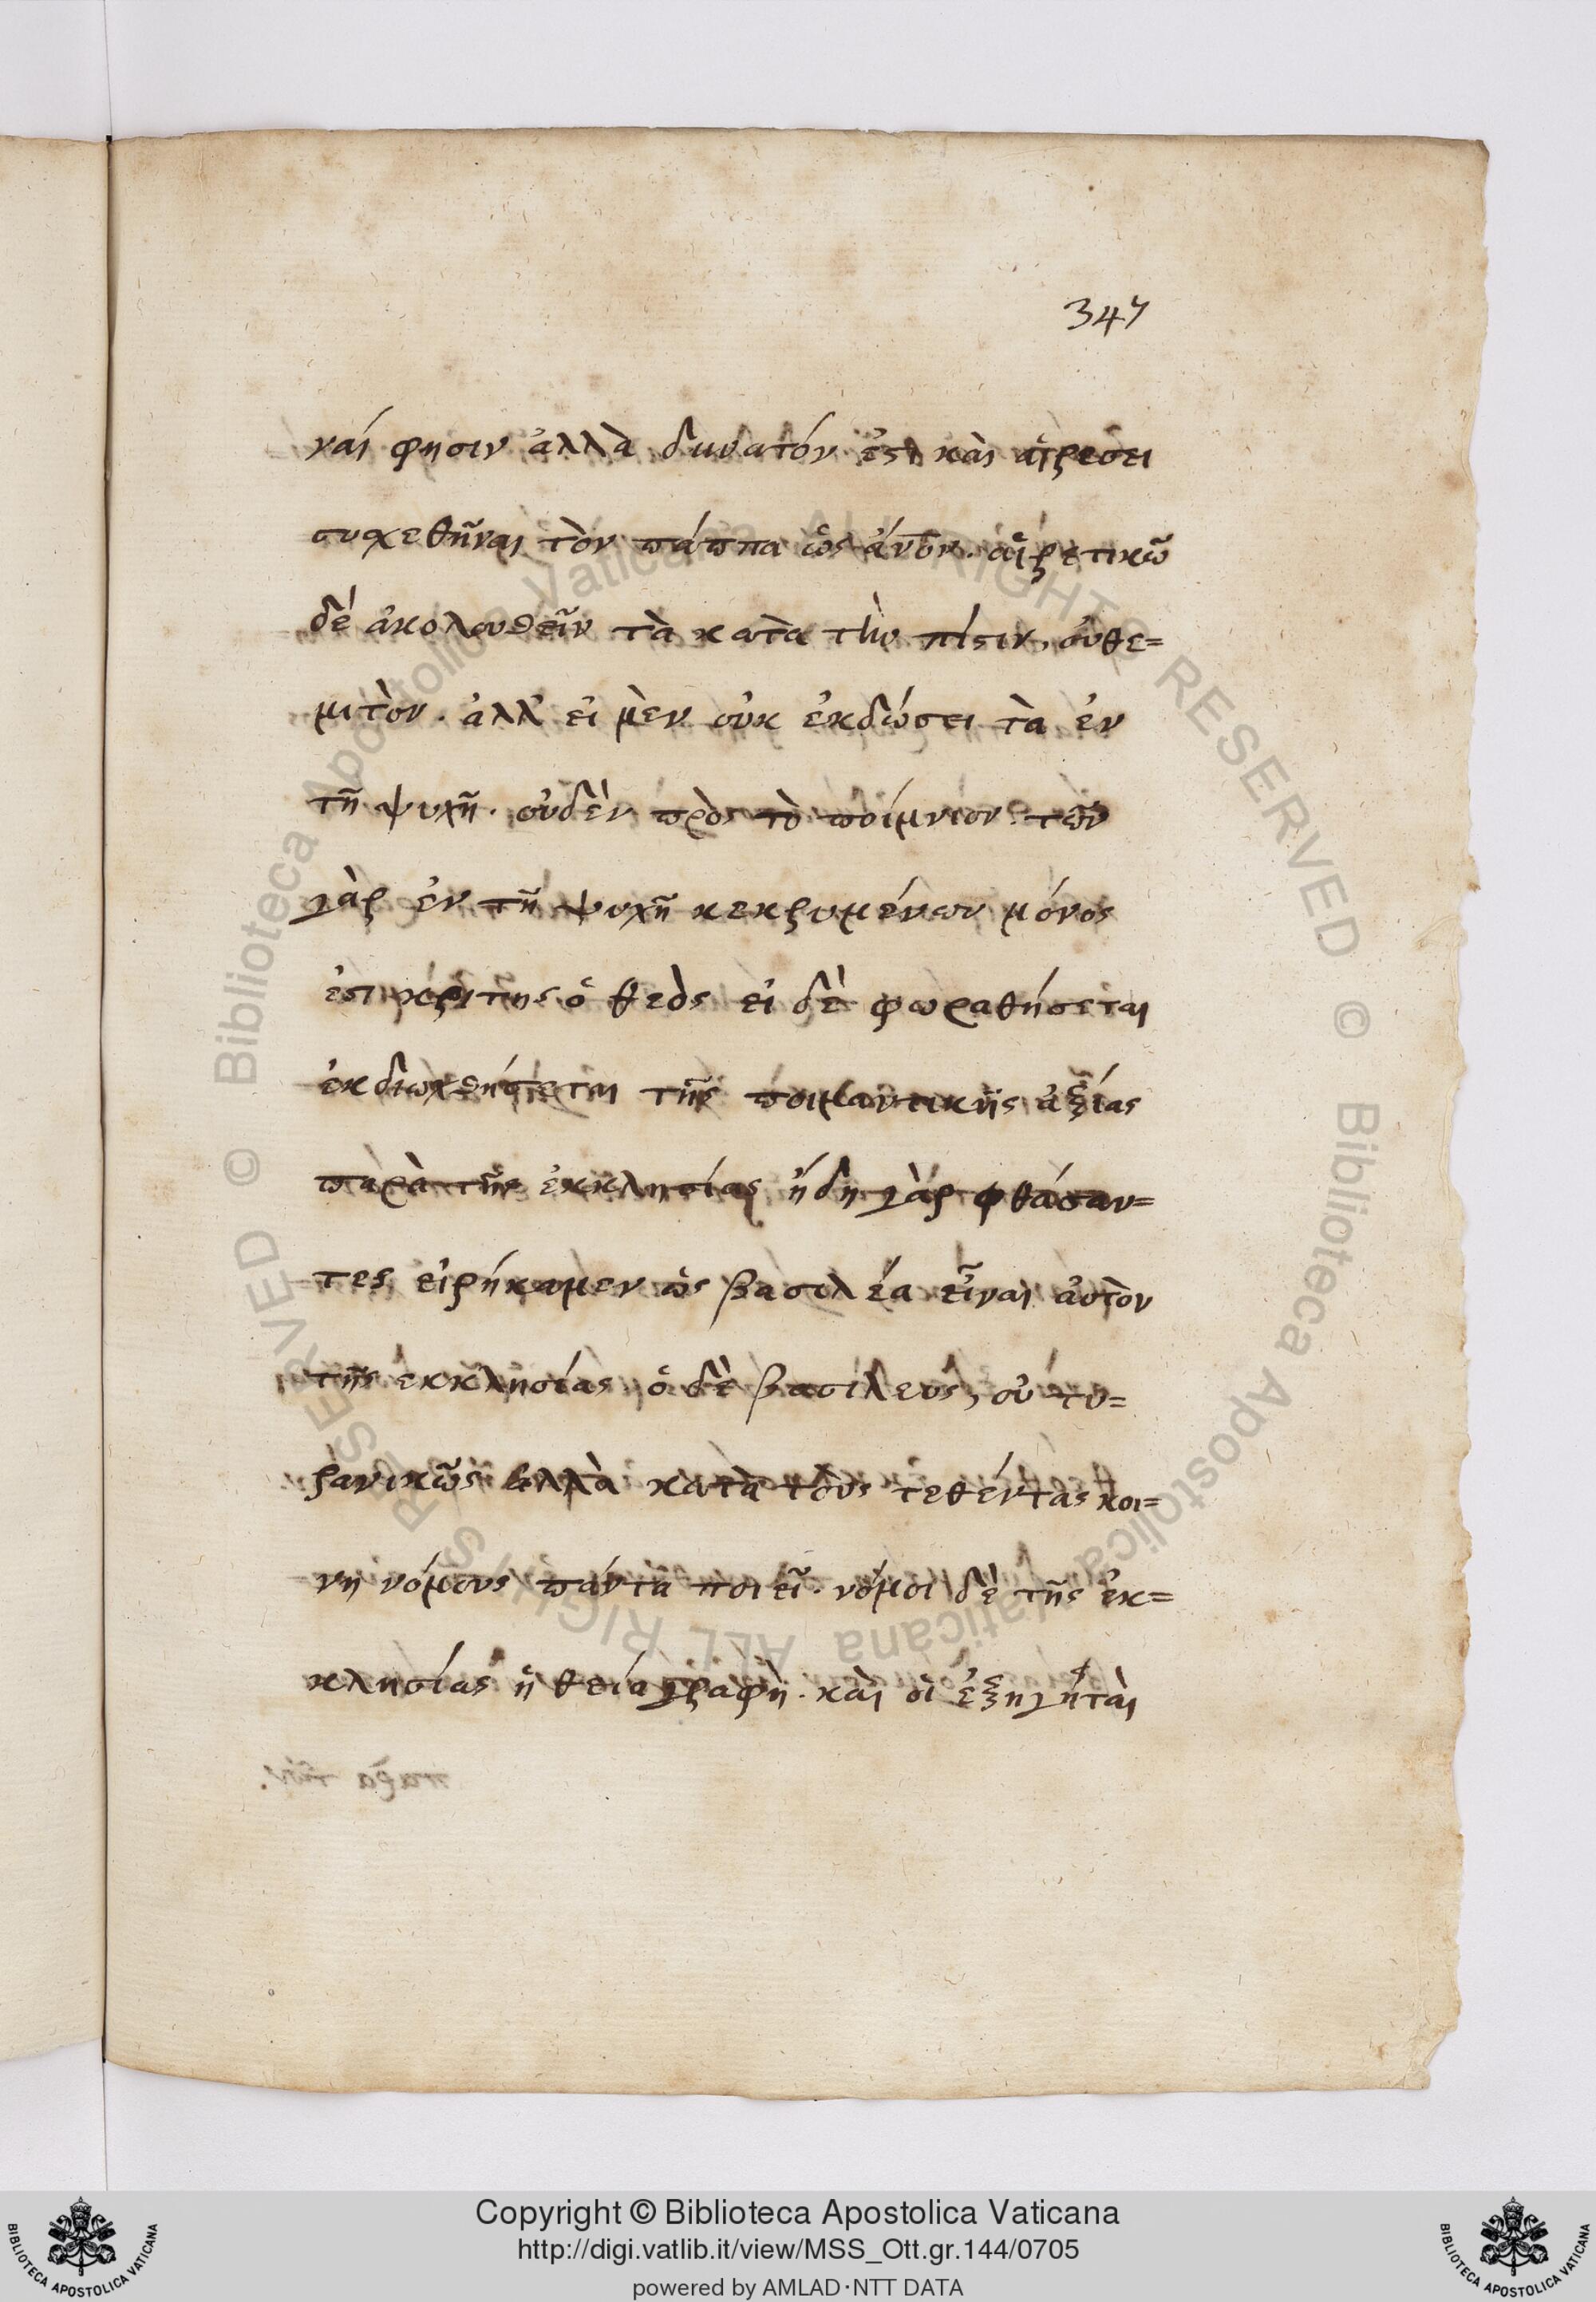 347
ναί φησιν ἀλλὰ δυνατόν ἐστι καὶ αἱρέσει
συσχεθῆναι τὸν πάππα ὡς ἄνον. αἱρετικῶ
δέ ἀκολουθεῖν τὰ κατὰ τὴν πίστιν, οὐθε=
μιτὸν. ἀλλ' εἰ μὲν οὐκ ἐκδώσει τὰ ἐν
τῆ ψυχῆ. οὐδὲν πρὸς τὸ ποίμνιον. τῶν
γὰρ ἐν τῆ ψυχῆ κεκρυμένων μόνος
ἐστὶ κριτης ὁ θεὸς εἰ δὲ φωραθήσεται
ἐκδιωχθήσεται τῆς ποιμαντικῆς ἀξίας
παρὰ τῆς ἐκκλησίας ἤδη γὰρ φθάσαν=
τες εἰρήκαμεν ὡς βασιλέα εἶναι αὐτὸν
τῆς ἐκκλησίας ὁ δὲ βασιλευς, οὐ τυ=
ρανικῶς ἀλλὰ κατὰ τοὺς τεθέντας κοι=
νη νόμους πάντα ποιεῖ. νόμοι δὲ τῆς ἐκ=
κλησίας ἡ θεία γραφὴ. καὶ οἱ ἐξηγήταὶ
Copyright © Biblioteca Apostolica Vaticana
http://digi.vatlib.it/view/MSS_Ott.gr.144/0705
powered by AMLAD·NTT DATA
BIBLIOTECA APOSTOLICA VATICANA
BIBLIOTECA APOSTOLICA VATICANA
© Biblioteca Apostolica Vaticana ALL RIGHTS RESERVED © Biblioteca Apostolica Vaticana ALL RIGHTS RESERVED